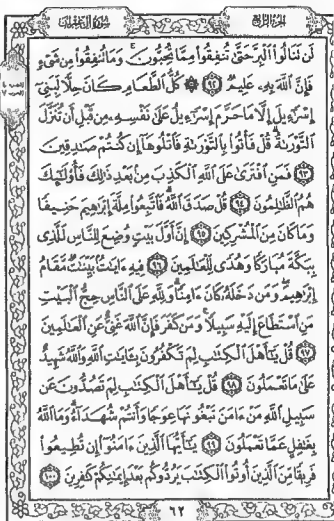 سُورَةُ آلِ عِمْرَانَ الجُزْءُ الرَّابِعُ
لَن نَنَالُوا۟ ٱلْبِرَّ حَتَّىٰ تُنفِقُوا۟ مِمَّا تُحِبُّونَ ۚ وَمَا تُنفِقُوا۟ مِن شَىْءٍ
فَإِنَّ ٱللَّهَ بِهِۦ عَلِيمٌ ٩٢ ۞ كُلُّ ٱلطَّعَامِ كَانَ حِلًّا لِّبَنِىٓ
إِسْرَٰٓءِيلَ إِلَّا مَا حَرَّمَ إِسْرَٰٓءِيلُ عَلَىٰ نَفْسِهِۦ مِن قَبْلِ أَن تُنَزَّلَ
ٱلتَّوْرَىٰةُ ۗ قُلْ فَأْتُوا۟ بِٱلتَّوْرَىٰةِ فَٱتْلُوهَآ إِن كُنتُمْ صَٰدِقِينَ
٩٣ فَمَنِ ٱفْتَرَىٰ عَلَى ٱللَّهِ ٱلْكَذِبَ مِنۢ بَعْدِ ذَٰلِكَ فَأُو۟لَٰٓئِكَ
هُمُ ٱلظَّٰلِمُونَ ٩٤ قُلْ صَدَقَ ٱللَّهُ ۗ فَٱتَّبِعُوا۟ مِلَّةَ إِبْرَٰهِيمَ حَنِيفًا
وَمَا كَانَ مِنَ ٱلْمُشْرِكِينَ ٩٥ إِنَّ أَوَّلَ بَيْتٍ وُضِعَ لِلنَّاسِ لَلَّذِى
بِبَكَّةَ مُبَارَكًا وَهُدًى لِّلْعَٰلَمِينَ ٩٦ فِيهِ ءَايَٰتٌۢ بَيِّنَٰتٌ مَّقَامُ
إِبْرَٰهِيمَ ۖ وَمَن دَخَلَهُۥ كَانَ ءَامِنًا ۗ وَلِلَّهِ عَلَى ٱلنَّاسِ حِجُّ ٱلْبَيْتِ
مَنِ ٱسْتَطَاعَ إِلَيْهِ سَبِيلًا ۚ وَمَن كَفَرَ فَإِنَّ ٱللَّهَ غَنِىٌّ عَنِ ٱلْعَٰلَمِينَ
٩٧ قُلْ يَٰٓأَهْلَ ٱلْكِتَٰبِ لِمَ تَكْفُرُونَ بِـَٔايَٰتِ ٱللَّهِ وَٱللَّهُ شَهِيدٌ
عَلَىٰ مَا تَعْمَلُونَ ٩٨ قُلْ يَٰٓأَهْلَ ٱلْكِتَٰبِ لِمَ تَصُدُّونَ عَن
سَبِيلِ ٱللَّهِ مَنْ ءَامَنَ تَبْغُونَهَا عِوَجًا وَأَنتُمْ شُهَدَآءُ ۗ وَمَا ٱللَّهُ
بِغَٰفِلٍ عَمَّا تَعْمَلُونَ ٩٩ يَٰٓأَيُّهَا ٱلَّذِينَ ءَامَنُوٓا۟ إِن تُطِيعُوا۟
فَرِيقًا مِّنَ ٱلَّذِينَ أُوتُوا۟ ٱلْكِتَٰبَ يَرُدُّوكُم بَعْدَ إِيمَٰنِكُمْ كَٰفِرِينَ ١٠٠
٦٢